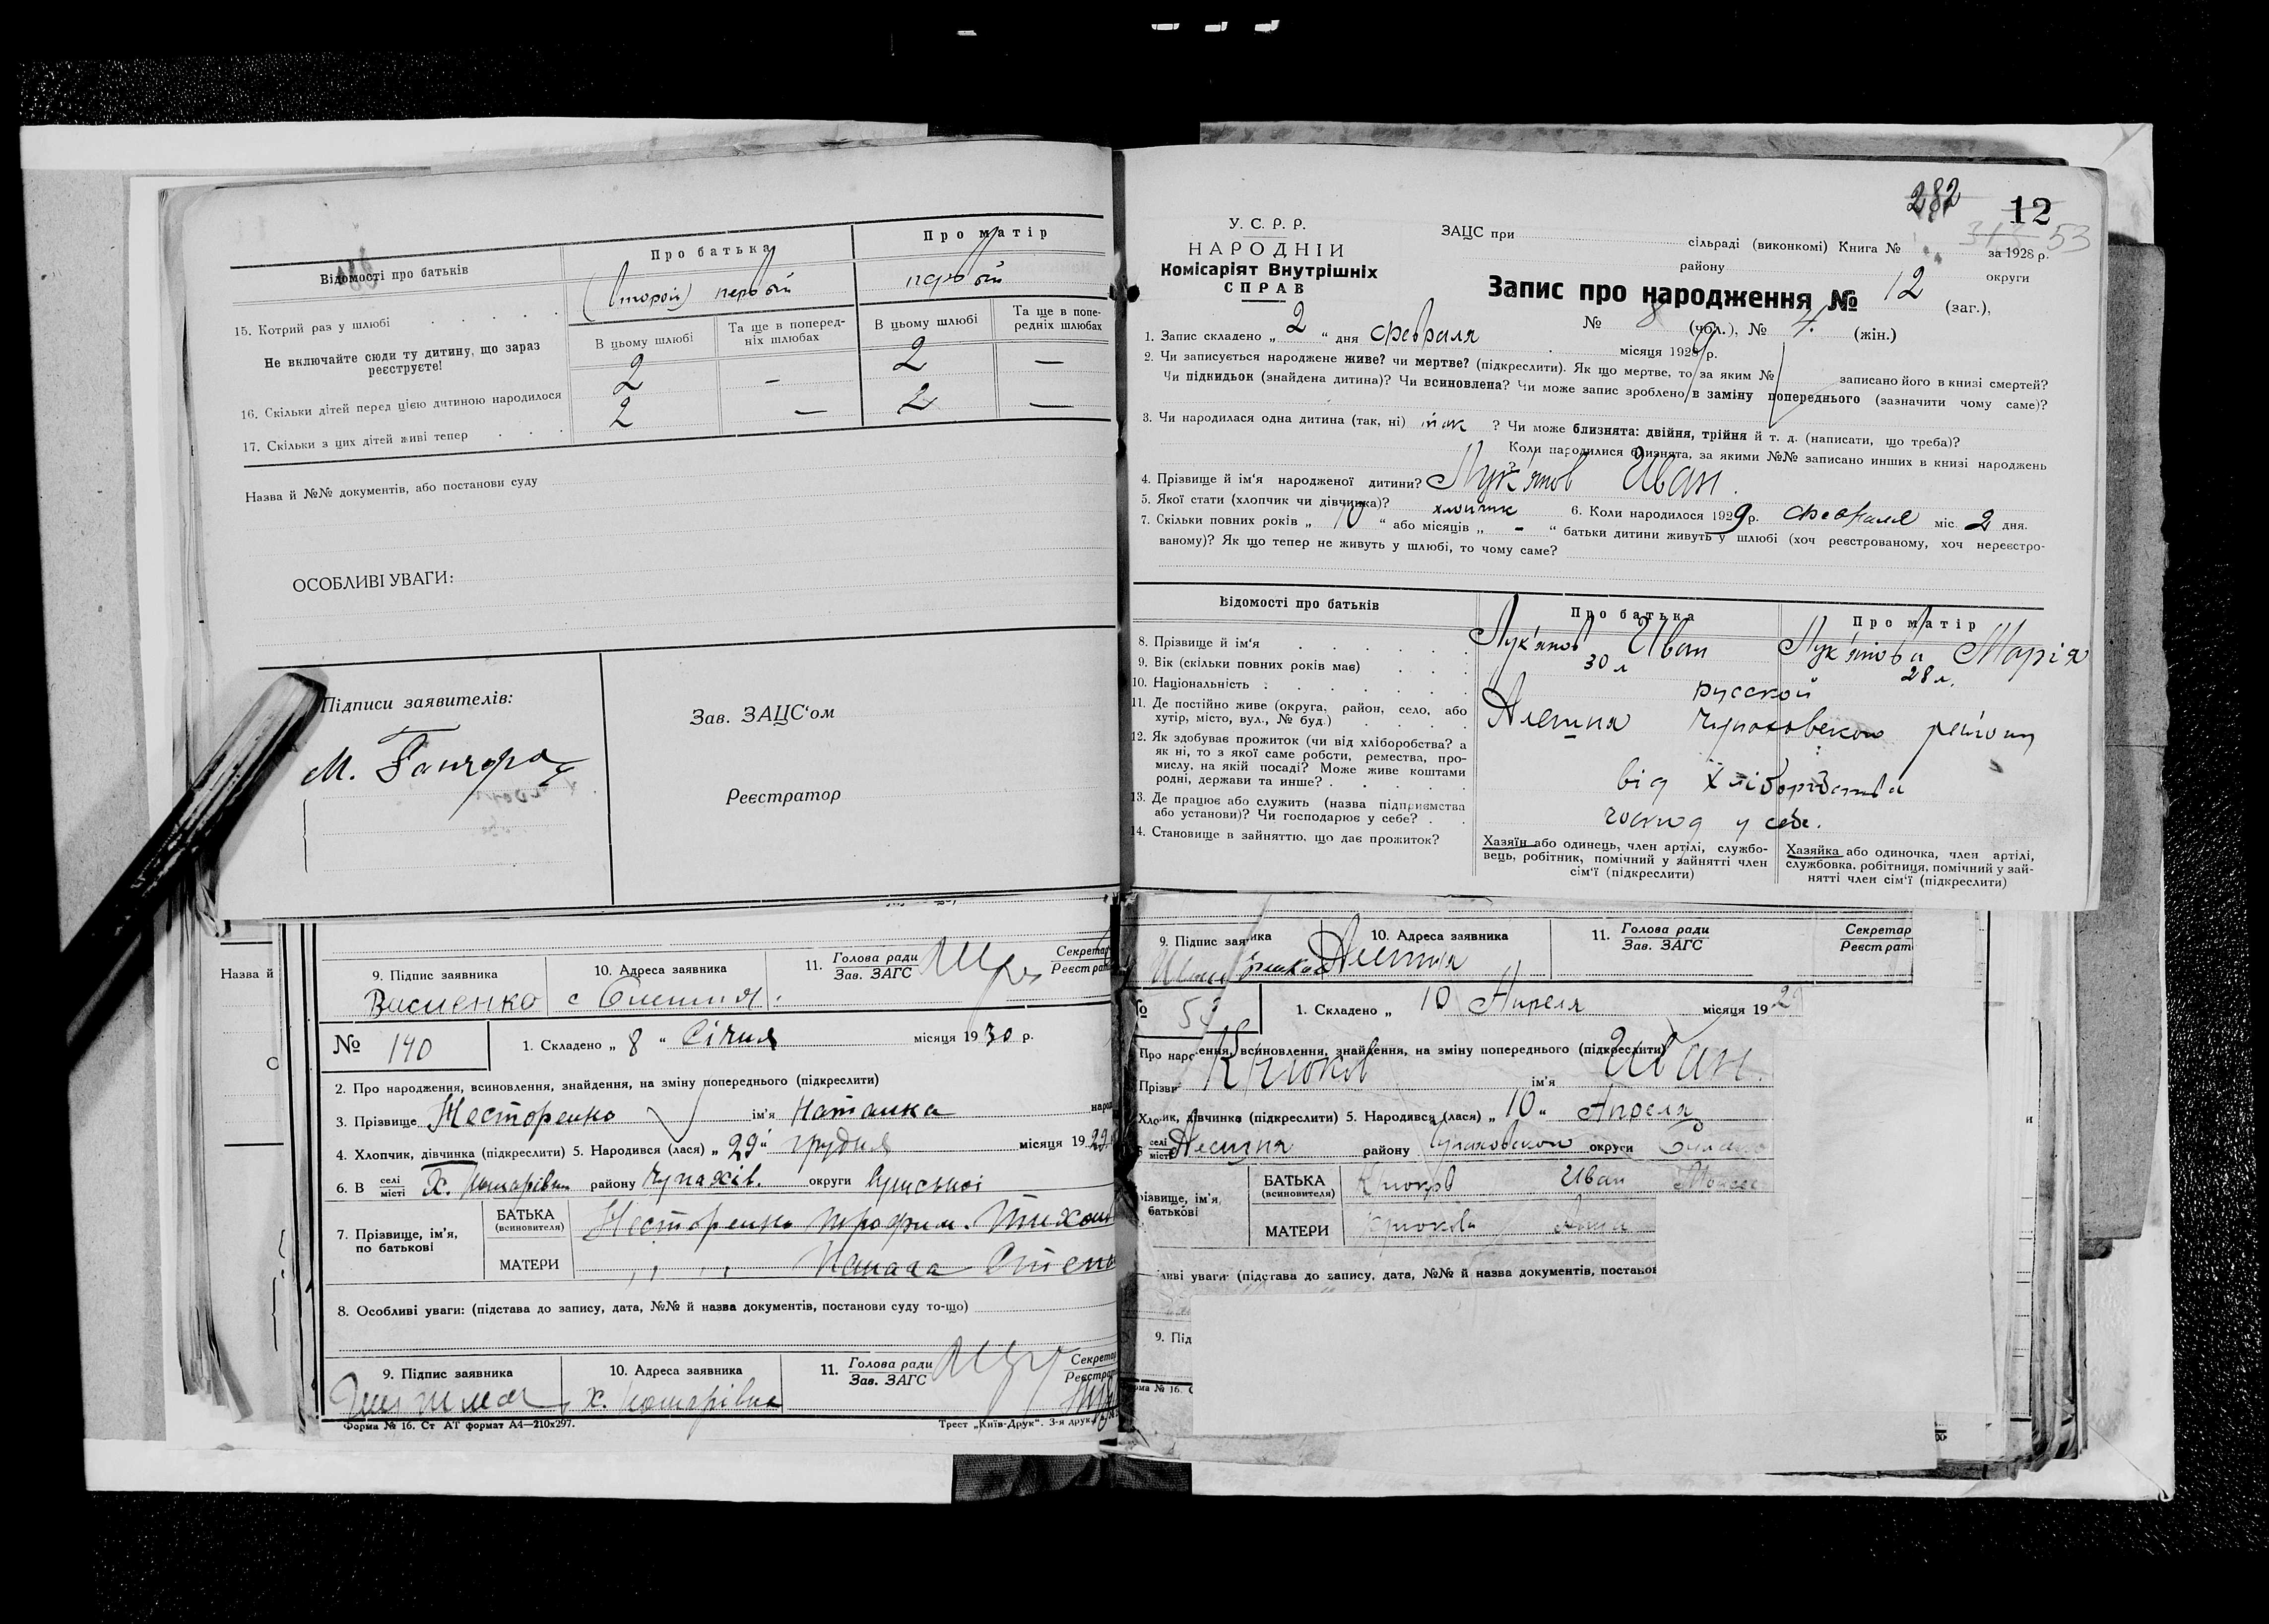 Відомості про батьків
Про батька
Про матір
15. Котрий раз у шлюбі
(второй) первый
первый
Не включайте сюди ту дитину, що зараз реєструєте!
В цьому шлюбі
Та ще в попередніх шлюбах
В цьому шлюбі
Та ще в попередніх шлюбах
16. Скільки дітей перед цією дитиною народилося
2 — 2 —
17. Скільки з цих дітей живі тепер
2 — 2 —
Назва й №№ документів, або постанови суду
ОСОБЛИВІ УВАГИ:
Підписи заявителів:
М. Ганчора
Зав. ЗАЦС'ом
Реєстратор
Назва й
9. Підпис заявника
10. Адреса заявника
11. Голова ради
Зав. ЗАГС
Секретар
Реєстрат
с
№ 140
1. Складено „ 8 “ Січня місяця 1930 р.
2. Про народження, всиновлення, знайдення, на зміну попереднього (підкреслити)
3. Прізвище Несторенко ім'я Наталка
4. Хлопчик, дівчинка (підкреслити) 5. Народився (лася) „ 29 “ грудня місяця 1929
6. В селі
місті
району Чупахів. округи Сумської
7. Прізвище, ім'я, по батькові
БАТЬКА
(всиновителя)
Несторенко Трофим. Тихон
МАТЕРИ
8. Особливі уваги: (підстава до запису, дата, №№ й назва документів, постанови суду то-що)
9. Підпис заявника
10. Адреса заявника
11. Голова ради
Зав. ЗАГС
Секретар
Реєстрат
х.
Форма № 16. Ст АТ формат А4—210х297.
Трест „Київ-Друк“. 3-я друк.
282
12
53
У. С. Р. Р.
НАРОДНІЙ
Комісаріят Внутрішніх
СПРАВ
ЗАЦС при сільраді (виконкомі) Книга № за 1928 р.
району округи
Запис про народження № 12 (заг.),
№ 8 (чол.), № 4. (жін.)
1. Запис складено „ 2 “ дня февраля місяця 1929 р.
2. Чи записується народжене живе? чи мертве? (підкреслити). Як що мертве, то за яким № записано його в книзі смертей?
Чи підкидьок (знайдена дитина)? Чи всиновлена? Чи може запис зроблено в заміну попереднього (зазначити чому саме)?
3. Чи народилася одна дитина (так, ні) так ? Чи може близнята: двійня, трійня й т. д. (написати, що треба)?
Коли народилися близнята, за якими №№ записано инших в книзі народжень
4. Прізвище й ім'я народженої дитини? Лук'янов Иван.
5. Якої стати (хлопчик чи дівчинка)? хлопчик 6. Коли народилося 1929 р. февраля міс. 2 дня.
7. Скільки повних років „ 10 “ або місяців „ - “ батьки дитини живуть у шлюбі (хоч реєстрованому, хоч нереєстро-
ваному)? Як що тепер не живуть у шлюбі, то чому саме?
Відомості про батьків
Про батька
Про матір
8. Прізвище й ім'я
Лук'янов Иван
Лук'янова Марія
9. Вік (скільки повних років має)
30 л
28 л.
10. Національність
русской
11. Де постійно живе (округа, район, село, або
хутір, місто, вул., № буд.)
Алешня Чупаховского району
12. Як здобуває прожиток (чи від хліборобства? а
як ні, то з якої саме роботи, ремества, про-
мислу, на якій посаді? Може живе коштами
родні, держави та инше?
від хліборобства
13. Де працює або служить (назва підприємства
або установи)? Чи господарює у себе?
господ у себе.
14. Становище в зайняттю, що дає прожиток?
Хазяїн або одинець, член артілі, службо-
вець, робітник, помічний у зайнятті член
сім'ї (підкреслити)
Хазяйка або одиночка, член артілі,
службовка, робітниця, помічний у зай-
нятті член сім'ї (підкреслити)
9. Підпис заявника
10. Адреса заявника
11. Голова ради
Зав. ЗАГС
Секретар
Реєстрат
Алешня
1. Складено „ 10 Апреля місяця 192
ення, всиновлення, знайдення, на зміну попереднього (підкреслити)
Крюков ім'я Иван.
дівчинка (підкреслити) 5. Народився (лася) „ 10 “ Апреля
селі
місті
Алешня району Чупаховского округи
БАТЬКА
(всиновителя)
Крюков Иван
МАТЕРИ
Крюкова
уваги: (підстава до запису, дата, №№ й назва документів, постанов
9. Під